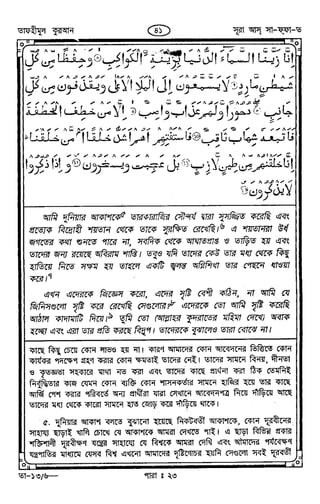 তাফহীমুল কুরআন
৪১
সূরা আস্ সা-ফ্ফা-ত
إِنَّا زَيَّنَّا السَّمَاءَ الدُّنْيَا بِزِينَةِ ۨالْكَوَاكِبِ ۞ وَحِفْظًا مِّنْ كُلِّ
شَيْطٰنٍ مَّارِدٍ ۞ لَا يَسَّمَّعُوْنَ إِلَى الْمَلَإِ الْأَعْلٰى وَيُقْذَفُوْنَ مِنْ كُلِّ
جَانِبٍ ۞ دُحُوْرًا وَّلَهُمْ عَذَابٌ وَّاصِبٌ ۞ إِلَّا مَنْ خَطِفَ الْخَطْفَةَ
فَأَتْبَعَهُ شِهَابٌ ثَاقِبٌ ۞ فَاسْتَفْتِهِمْ أَهُمْ أَشَدُّ خَلْقًا أَمْ مَّنْ خَلَقْنَا
إِنَّا خَلَقْنٰهُمْ مِّنْ طِيْنٍ لَّازِبٍ ۞ بَلْ عَجِبْتَ وَيَسْخَرُوْنَ ۞ وَإِذَا ذُكِّرُوْا
لَا يَذْكُرُوْنَ ۞
আমি দুনিয়ার আকাশকে৫ তারকারাজির সৌন্দর্য দ্বারা সুসজ্জিত করেছি এবং
প্রত্যেক বিদ্রোহী শয়তান থেকে তাকে সুরক্ষিত রেখেছি।৬ এ শয়তানরা ঊর্ধ
জগতের কথা শুনতে পারে না, সবদিক থেকে আঘাতপ্রাপ্ত ও তাড়িত হয় এবং
তাদের জন্য রয়েছে অবিরাম শাস্তি। তবুও যদি তাদের কেউ তার মধ্য থেকে কিছু
হাতিয়ে নিতে সক্ষম হয় তাহলে একটি জ্বলন্ত অগ্নিশিখা তার পেছনে ধাওয়া
করে।৭
এখন এদেরকে জিজ্ঞেস করো, এদের সৃষ্টি বেশী কঠিন, না আমি যে
জিনিসগুলো সৃষ্টি করে রেখেছি সেগুলোর?৮ এদেরকে তো আমি সৃষ্টি করেছি
আঠাল কাদামাটি দিয়ে।৯ তুমি তো (আল্লাহর কুদরাতের মহিমা দেখে) অবাক
হচ্ছো এবং এরা তার প্রতি করছে বিদ্রূপ। এদেরকে বুঝালেও তারা বোঝে না।
কাছে কিছু চেয়ে কোন লাভও হয় না। কারণ আমাদের কোন আবেদনের ভিত্তিতে কোন
কার্যকর পদক্ষেপ গ্রহণ করার কোন ক্ষমতাই তাদের নেই। তাদের সামনে বিনয়, দীনতা
ও কৃতজ্ঞতা সহকারে মাথা নত করা এবং তাদের কাছে প্রার্থনা করা ঠিক তেমনিই
নির্বুদ্ধিতার কাজ যেমন কোন ব্যক্তি কোন শাসনকর্তার সামনে হাজির হয়ে তার কাছে
আর্জি পেশ করার পরিবর্তে অন্য প্রার্থীরা যারা সেখানে আবেদনপত্র নিয়ে দাঁড়িয়ে আছে
তাদের মধ্য থেকে কারো সামনে হাত জোড় করে দাঁড়িয়ে থাকে।
৫. দুনিয়ার আকাশ বলতে বুঝানো হয়েছে নিকটবর্তী আকাশকে, কোন দূরবীনের
সাহায্য ছাড়াই খালি চোখে যে আকাশকে আমরা দেখতে পাই। এ ছাড়া বিভিন্ন প্রকার
শক্তিশালী দূরবীক্ষণ যন্ত্রের সাহায্যে যে বিশ্বকে আমরা দেখি এবং আমাদের পর্যবেক্ষণ
যন্ত্রপাতির মাধ্যমে যেসব বিশ্ব এখনো আমাদের দৃষ্টিগোচর হয়নি সেগুলো সবই দূরবর্তী
তা-১৩/৬—
পারা : ২৩